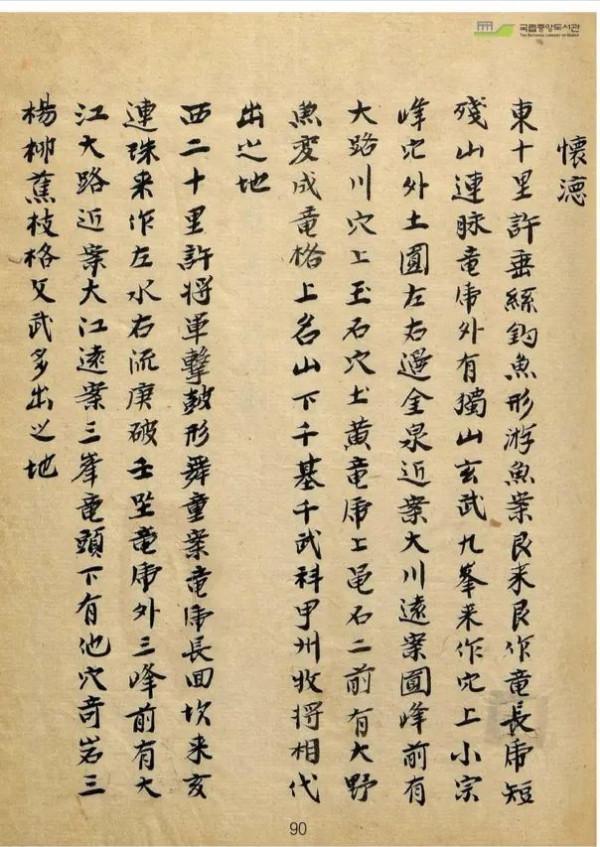 국립중앙도서관
THE NATIONAL LIBRARY OF KOREA
懷德
東十里許垂絲釣魚形游魚案艮来艮作竜長虎短
殘山連脉竜虎外有獨山玄武九峯来作穴上小宗
峰穴外土圓左右邊金泉近案大川遠案圓峰前有
大路川穴上玉石穴土黃竜虎上黾石二前有大野
魚変成竜格上名山下千基千武科甲州牧將相代
出之地
西二十里許将軍擊鼓形舞童案竜虎長回坎来亥
連珠来作左水右流庚破壬坐竜虎外三峰前有大
江大路近案大江遠案三峯竜頭下有他穴奇岩三
楊柳蕉枝格文武多出之地
90